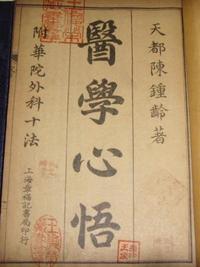 天都陳鍾齡著
醫學心悟
附華陀外科十法
上海章福記書局印行